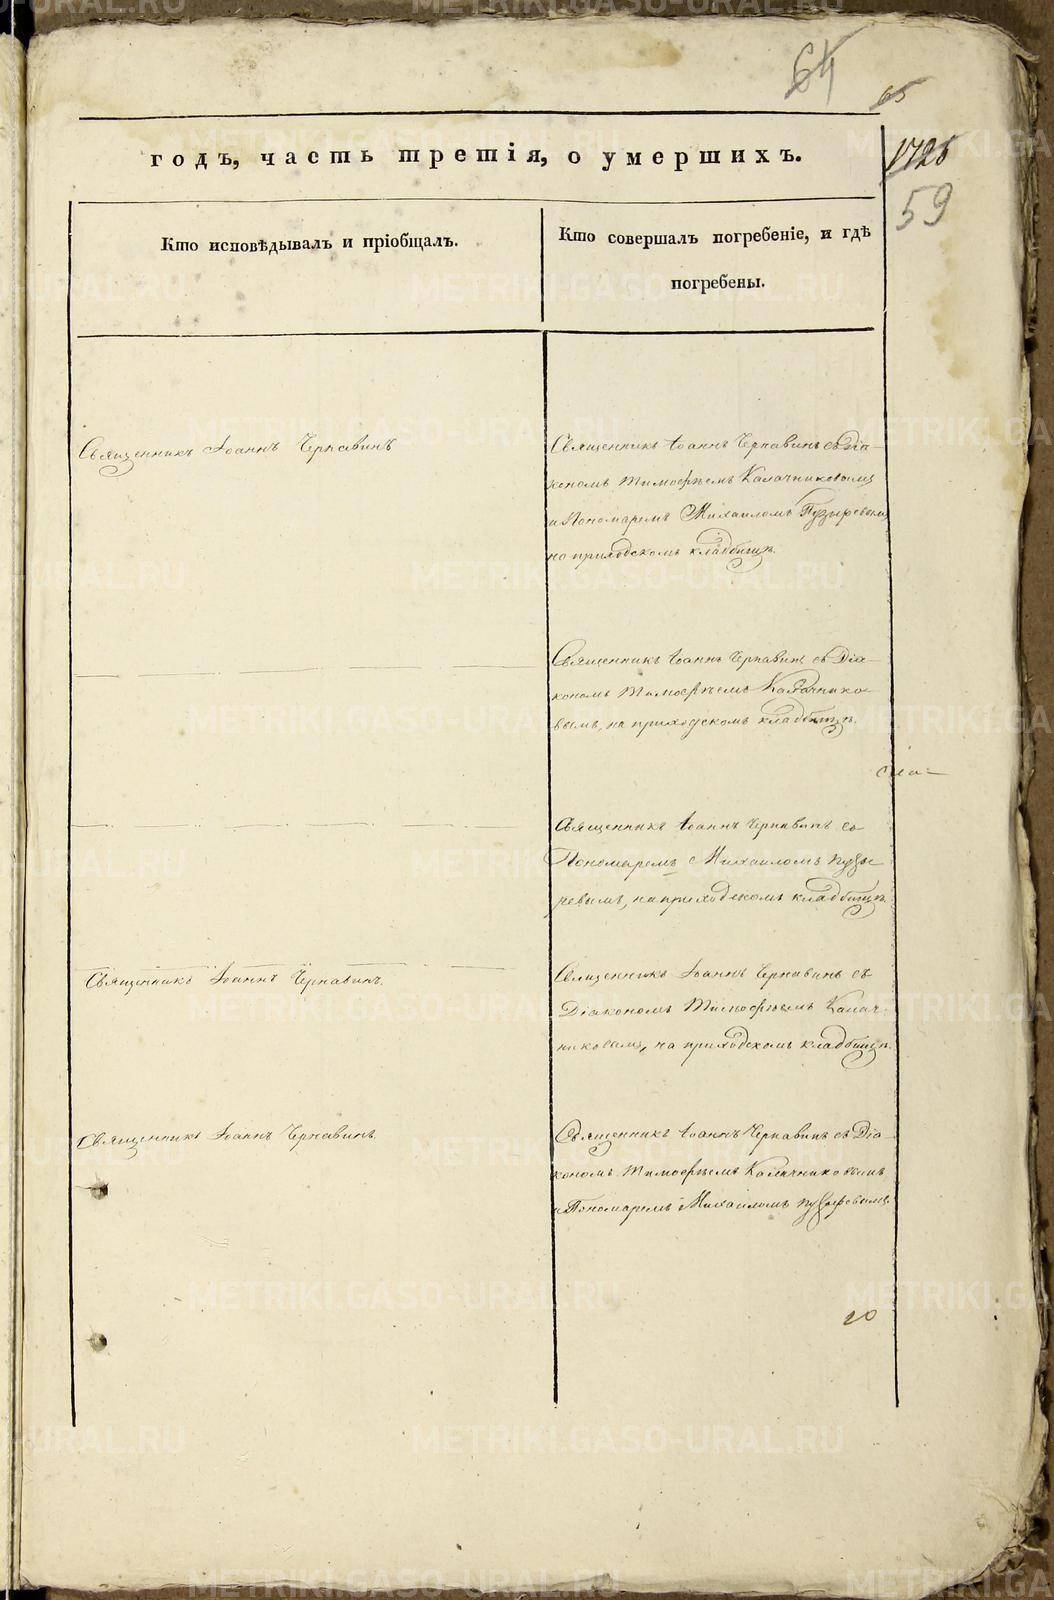 64
65
годъ, часть третія, о умершихъ.
1726
59
Кто исповѣдывалъ и пріобщалъ.
Кто совершалъ погребеніе, и гдѣ
погребены.
Священникъ Іоаннъ Чернавинъ
Священникъ Іоаннъ Чернавинъ съ Діа-
кономъ Тимофѣемъ Калачниковымъ
и Пономаремъ Михаиломъ Пузыревымъ,
на приходскомъ кладбищѣ.
Священникъ Іоаннъ Чернавинъ съ Діа-
кономъ Тимофѣемъ Калачнико-
вымъ, на приходскомъ кладбищѣ.
Священникъ Іоаннъ Чернавинъ съ
Пономаремъ Михаиломъ Пузы-
ревымъ, на приходскомъ кладбищѣ.
Священникъ Іоаннъ Чернавинъ.
Священникъ Іоаннъ Чернавинъ съ
Діакономъ Тимофѣемъ Калач-
никовымъ, на приходскомъ кладбищѣ.
Священникъ Іоаннъ Чернавинъ
Священникъ Іоаннъ Чернавинъ съ Діа-
кономъ Тимофѣемъ Калачниковымъ
и Пономаремъ Михаиломъ Пузыревымъ.
METRIKI.GASO-URAL.RU